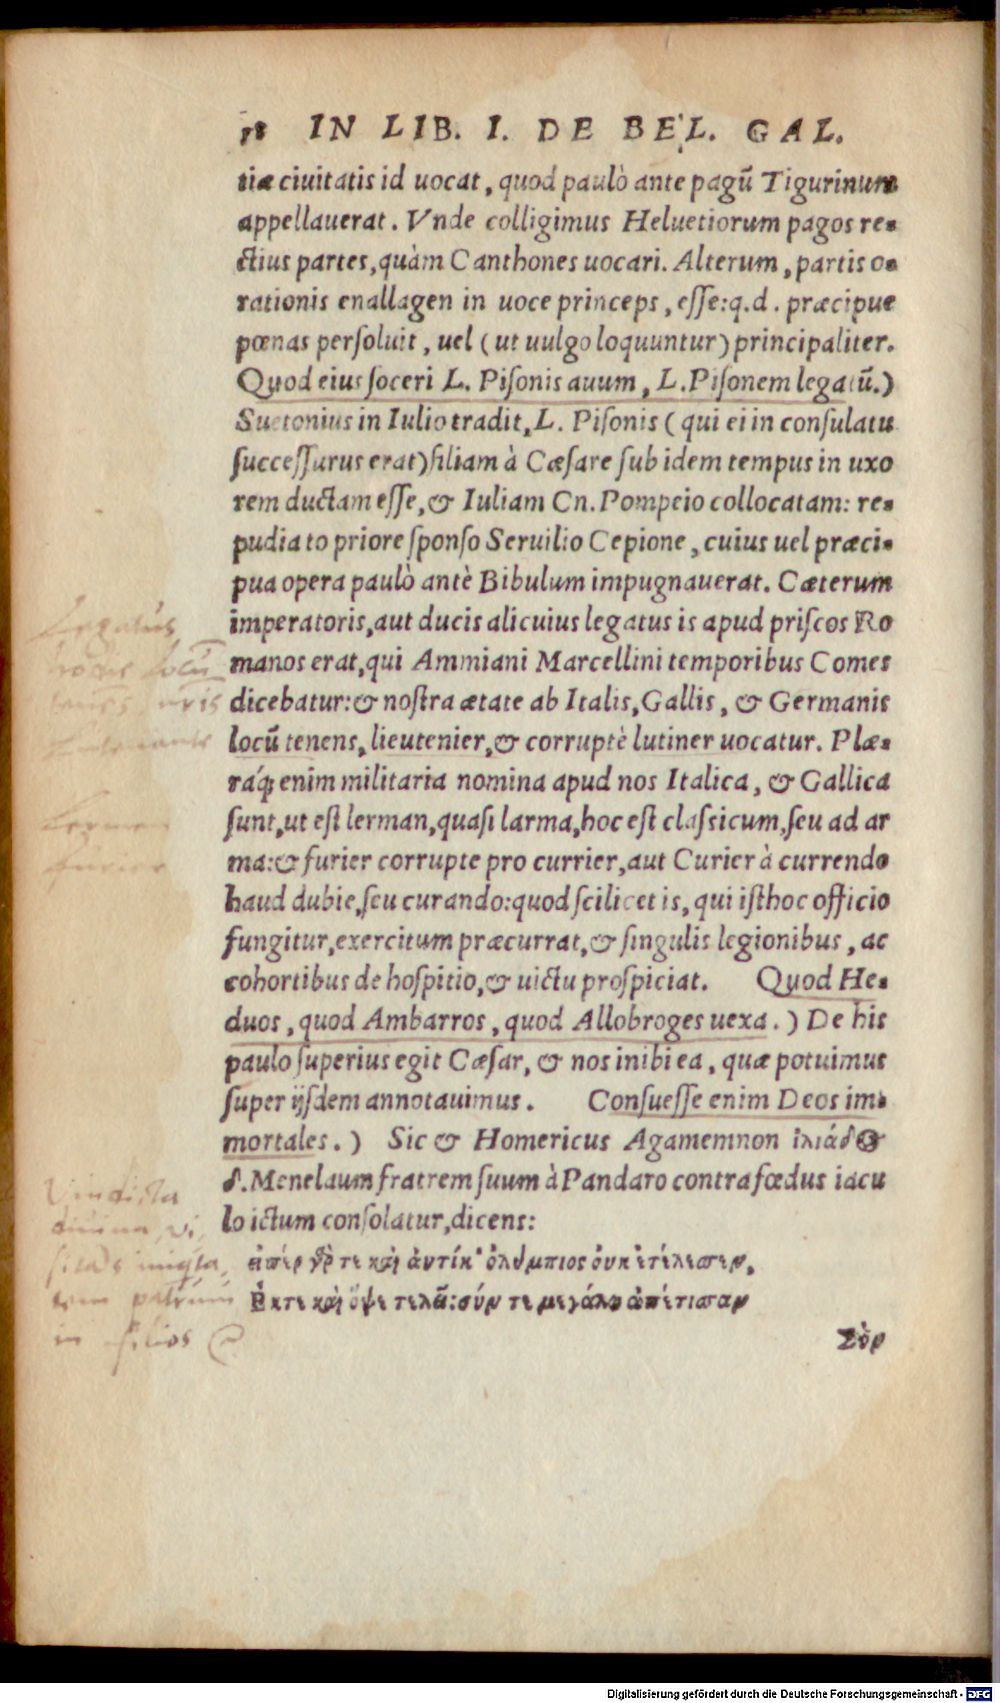 18 IN LIB. I. DE BEL. GAL.
tiæ ciuitatis id uocat, quod paulò ante pagũ Tigurinum
appellauerat. Vnde colligimus Heluetiorum pagos re-
ctius partes, quàm Canthones uocari. Alterum, partis o-
rationis enallagen in uoce princeps, esse: q.d. præcipue
pœnas persoluit, uel (ut uulgo loquuntur) principaliter.
Quod eius soceri L. Pisonis auum, L. Pisonem legatũ.)
Suetonius in Iulio tradit, L. Pisonis (qui ei in consulatu
successurus erat) filiam à Cæsare sub idem tempus in uxo
rem ductam esse, & Iuliam Cn. Pompeio collocatam: re-
pudiato priore sponso Seruilio Cepione, cuius uel præci-
pua opera paulò antè Bibulum impugnauerat. Cæterum
imperatoris, aut ducis alicuius legatus is apud priscos Ro
manos erat, qui Ammiani Marcellini temporibus Comes
dicebatur: & nostra ætate ab Italis, Gallis, & Germanis
locũ tenens, lieutenier, & corruptè lutiner uocatur. Plæ-
ráq; enim militaria nomina apud nos Italica, & Gallica
sunt, ut est lerman, quasi larma, hoc est classicum, seu ad ar
ma: & furier corrupte pro currier, aut Curier à currendo
haud dubie, seu curando: quod scilicet is, qui isthoc officio
fungitur, exercitum præcurrat, & singulis legionibus, ac
cohortibus de hospitio, & uictu prospiciat. Quod He-
duos, quod Ambarros, quod Allobroges uexa.) De his
paulo superius egit Cæsar, & nos inibi ea, quæ potuimus
super ijsdem annotauimus. Consuesse enim Deos im-
mortales.) Sic & Homericus Agamemnon ἰλιάδΘ
δ. Menelaum fratrem suum à Pandaro contra fœdus iacu
lo ictum consolatur, dicens:
ἐπέρ γὸρ τε καὶ ἀυτίκ' ὀλύμπιος ὀυκ ἐτέλεσεν,
Ἐκτε καὶ ὀψε τελᾶ: σύν τε μεγάλῳ ἀπέτισαν
Σὺν
Legatus
hodie locũ
tenens
Lerman
furier
Vindicta
diuina, vi,
sitads iniq̃ta,
tem patrum
in filios
Digitalisierung gefördert durch die Deutsche Forschungsgemeinschaft - DFG